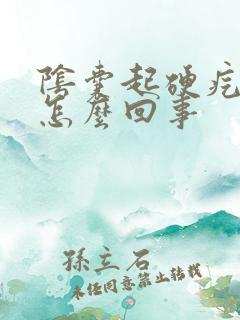 陰囊起硬疙
怎麼回事
孫立石
未經同意禁止轉載